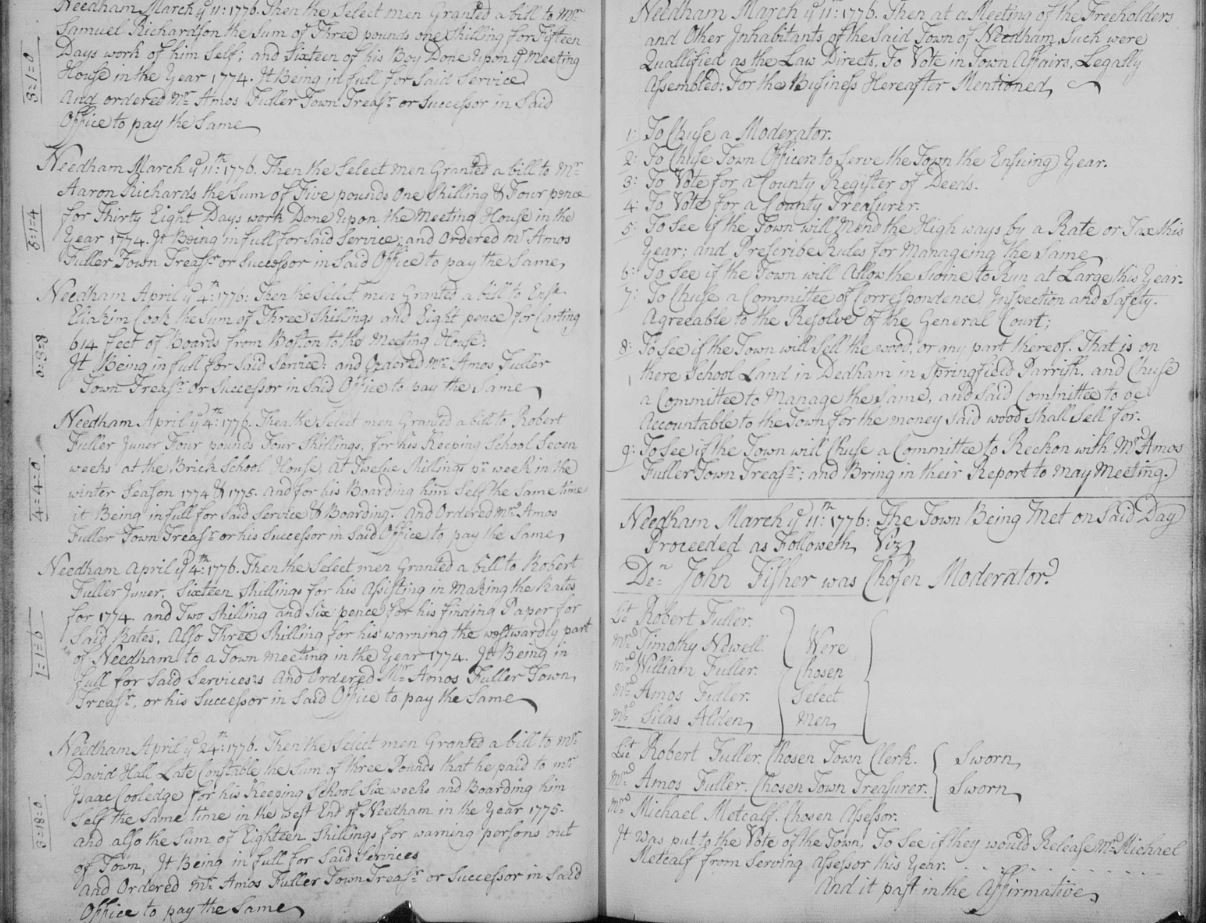 Needham March yͤ 11: 1776. Then the Select men Granted a bill to Mr
Samuel Richardson the Sum of Three pounds one Shilling for Fifteen
Days work of him Self; and Sixteen of his Boy Done upon yͤ Meeting
House in the Year 1774. It Being in full for Said Service
And ordered Mr Amos Fuller Town Treasr or Successor in Said
Office to pay the Same
3=1=0
Needham March yͤ 11th: 1776. Then the Select men Granted a bill to Mr
Aaron Richards the Sum of Five pounds One Shilling & Four pence
for Thirty Eight Days work Done upon the Meeting House in the
Year 1774. It Being in full for Said Service; and Ordered Mr Amos
Fuller Town Treasr or Successor in Said Office to pay the Same,
5=1=4
Needham April yͤ 4th: 1776: Then the Select men Granted a bill to Ensn
Eliakim Cook the Sum of Three Shillings and Eight pence for Carting
614 feet of Boards from Boston to the Meeting House:
It Being in full for Said Service: and Ordered Mr Amos Fuller
Town Treasr or Successor in Said Office to pay the Same
0=3=8
Needham April yͤ 4th: 1776. Then the Select men Granted a bill to Robert
Fuller Juner Four pounds Four Shillings, for his Keeping School Seven
weeks at the Brick School House at Twelve Shillings pr week in the
winter Season 1774 & 1775. And for his Boarding him Self the Same time
it Being in full for Said Service & Boarding. And Ordered Mr Amos
Fuller Town Treasr or his Successor in Said Office to pay the Same,
4=4=0
Needham April yͤ 4th: 1776. Then the Select men Granted a bill to Robert
Fuller Juner. Sixteen Shillings for his Assisting in Making the Rates
for 1774. and Two Shilling and Six pence for his finding Paper for
Said Rates, Also Three Shilling for his warning the westwardly part
of Needham to a Town meeting in the Year 1774. It Being in
full for Said Services And Ordered Mr Amos Fuller Town
Treasr. or his Successor in Said Office to pay the Same
1=1=6
Needham April yͤ 24th: 1776. Then the Select men Granted a bill to Mr
David Hall Late Constable the Sum of three Pounds that he paid to Mr
Isaac Cooledge for his Keeping School Six weeks and Boarding him
Self the Same time in the West End of Needham in the Year 1775.
and also the Sum of Eighteen Shillings for warning persons out
of Town, It Being in full for Said Services
And Ordered Mr Amos Fuller Town Treasr or Successor in Said
Office to pay the Same
3=18=0
Needham March yͤ 11: 1776. Then at a Meeting of the Freeholders
and Other Inhabitants of the Said Town of Needham, Such were
Quallified as the Law Directs, To Vote in Town Affairs, Legally
Assembled: For the Business Hereafter Mentioned,
1: To Chuse a Moderator.
2: To Chuse Town Officers to Serve the Town the Ensuing Year.
3: To Vote for a County Register of Deeds.
4: To Vote for a County Treasurer.
5: To See if the Town will Mend the High ways by a Rate or Tax this
Year; and Prescribe Rules for Manageing the Same
6: To See if the Town will Allow the Swine to Run at Large this Year.
7: To Chuse a Committee of Correspondence, Inspection and Safety.
Agreeable to the Resolve of the General Court;
8: To See if the Town will Sell the wood, or any part thereof. That is on
there School Land in Dedham in Springfield Parrish. and Chuse
a Committee to Manage the Same, and Said Committee to be
Accountable to the Town for the money Said wood Shall Sell for.
9: To See if the Town will Chuse a Committee to Reckon with Mr Amos
Fuller Town Treasr; and Bring in their Report to May Meeting.
Needham March yͤ 11th: 1776: The Town Being Met on Said Day
Proceeded as Followeth, Viz,
Den John Fisher was Chosen Moderator.
Lt Robert Fuller.
Mr Timothy Newell.
Mr William Fuller.
Mr Amos Fuller.
Mr Silas Alden,
Were
Chosen
Select
Men,
Lt Robert Fuller. Chosen Town Clerk. Sworn,
Mr Amos Fuller. Chosen Town Treasurer. Sworn,
Mr Michael Metcalf. Chosen Assessor.
It was put to the Vote of the Town, To See if they would Release Mr Michael
Metcalf from Serving Assessor this Year.
And it past in the Affirmative,